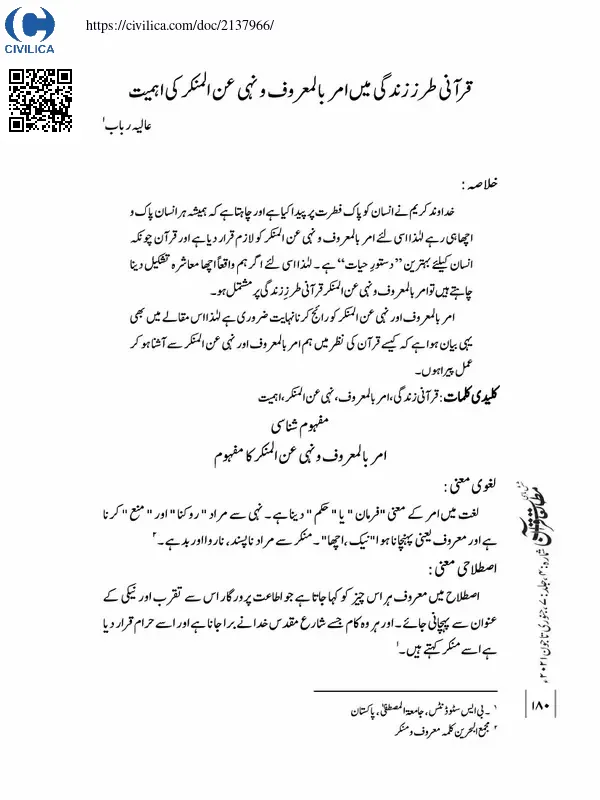 CIVILICA
https://civilica.com/doc/2137966/
قرآنی طرز زندگی میں امر بالمعروف و نہی عن المنکر کی اہمیت
عالیہ رباب۱
خلاصہ:
خداوند کریم نے انسان کو پاک فطرت پر پیدا کیا ہے اور چاہتا ہے کہ ہمیشہ ہر انسان پاک و
اچھا ہی رہے لہٰذا اسی لئے امر بالمعروف و نہی عن المنکر کو لازم قرار دیا ہے اور قرآن چونکہ
انسان کیلئے بہترین ”دستورِ حیات“ ہے۔ لہٰذا اسی لئے اگر ہم واقعاً اچھا معاشرہ تشکیل دینا
چاہتے ہیں تو امر بالمعروف و نہی عن المنکر قرآنی طرزِ زندگی پر مشتمل ہو۔
امر بالمعروف اور نہی عن المنکر کو رائج کرنا نہایت ضروری ہے لہٰذا اس مقالے میں بھی
یہی بیان ہوا ہے کہ کیسے قرآن کی نظر میں ہم امر بالمعروف اور نہی عن المنکر سے آشنا ہو کر
عمل پیرا ہوں۔
کلیدی کلمات: قرآنی زندگی، امر بالمعروف، نہی عن المنکر، اہمیت
مفہوم شناسی
امر بالمعروف و نہی عن المنکر کا مفہوم
لغوی معنی:
لغت میں امر کے معنی "فرمان" یا "حکم" دینا ہے۔ نہی سے مراد "روکنا" اور "منع" کرنا
ہے اور معروف یعنی پہنچانا ہوا "نیک، اچھا"۔ منکر سے مراد ناپسند، ناروا اور بد ہے۔۲
اصطلاحی معنی:
اصطلاح میں معروف ہر اس چیز کو کہا جاتا ہے جو اطاعت پرورگار اس سے تقرب اور نیکی کے
عنوان سے پہچانی جائے۔ اور ہر وہ کام جسے شارع مقدس خدا نے برا جانا ہے اور اسے حرام قرار دیا
ہے اسے منکر کہتے ہیں۔۱
۱۔ بی ایس سٹوڈنٹس، جامعۃ المصطفیٰ، پاکستان
۲ مجمع البحرین کلمہ معروف و منکر
مطالعات قرآن
شمارہ: ۴، جلد: ۷، جنوری تا جون ۲۰۲۱ء
۱۸۰